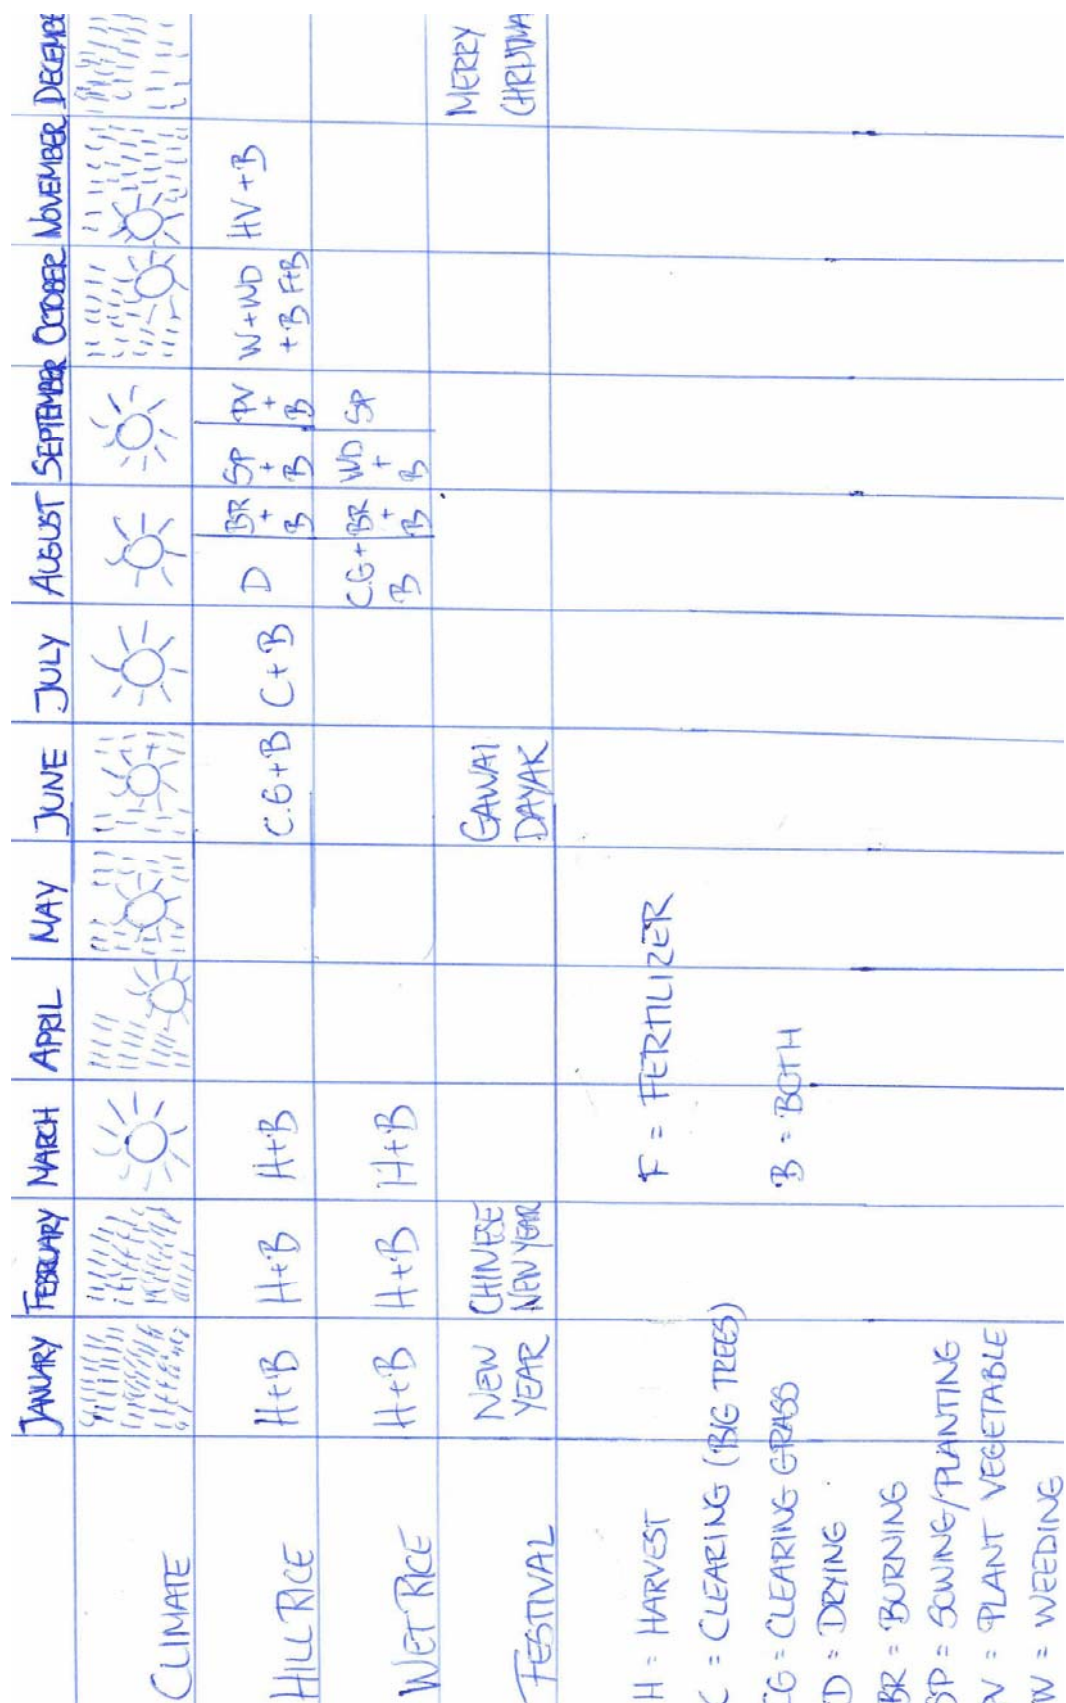 JANUARY FEBRUARY MARCH APRIL MAY JUNE JULY AUGUST SEPTEMBER OCTOBER NOVEMBER DECEMBE
CLIMATE
HILL RICE H+B H+B H+B C.G+B C+B D BR + B SP + B PV + B W+WD +B F+B HV+B
WET RICE H+B H+B H+B C.G + B BR + B WD + B SP
FESTIVAL NEW YEAR CHINESE NEW YEAR GAWAI DAYAK MERRY
H = HARVEST F = FERTILIZER
C = CLEARING (BIG TREES)
CG = CLEARING GRASS B = BOTH
D = DRYING
BR = BURNING
SP = SOWING/PLANTING
V = PLANT VEGETABLE
W = WEEDING